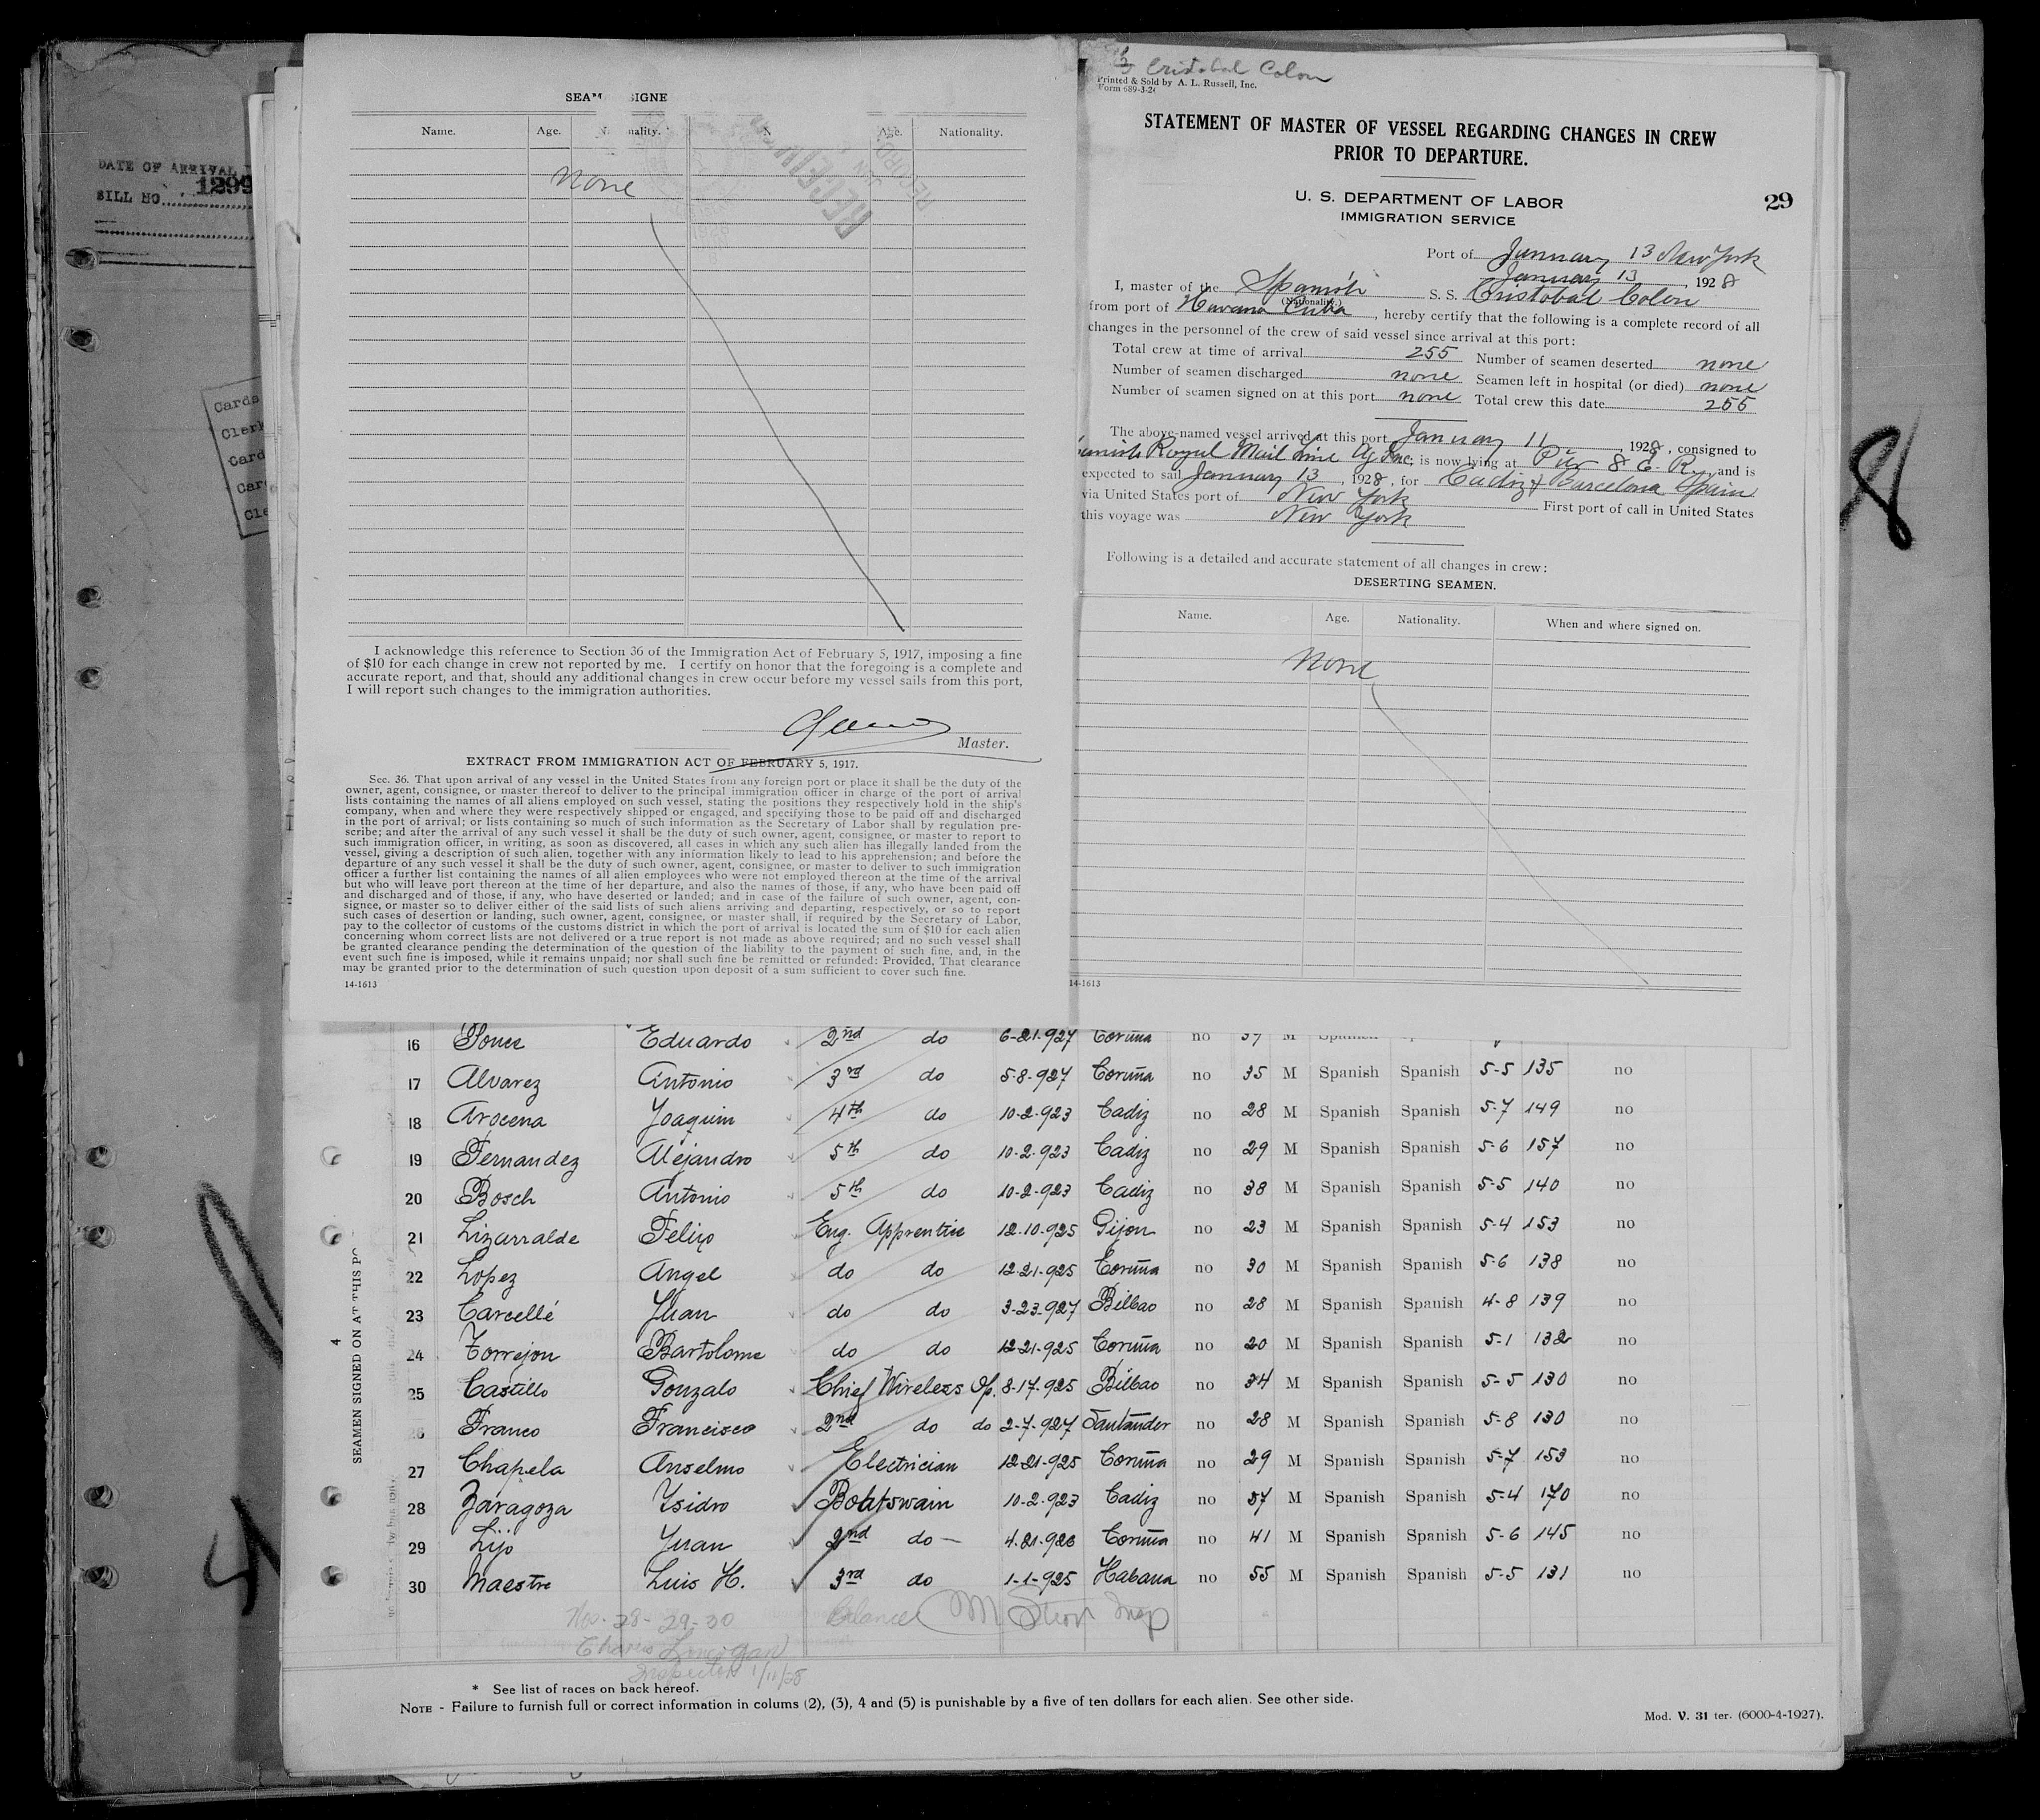 DATE OF ARRIVAL
BILL NO. 1299
Cards
Clerk
Card
Car
Cle
SEAM SIGNE
Name. Age. Nationality. N Age. Nationality.
RECEIV
RECORD
JAN
None
I acknowledge this reference to Section 36 of the Immigration Act of February 5, 1917, imposing a fine
of $10 for each change in crew not reported by me. I certify on honor that the foregoing is a complete and
accurate report, and that, should any additional changes in crew occur before my vessel sails from this port,
I will report such changes to the immigration authorities.
Master.
EXTRACT FROM IMMIGRATION ACT OF FEBRUARY 5, 1917.
Sec. 36. That upon arrival of any vessel in the United States from any foreign port or place it shall be the duty of the
owner, agent, consignee, or master thereof to deliver to the principal immigration officer in charge of the port of arrival
lists containing the names of all aliens employed on such vessel, stating the positions they respectively hold in the ship's
company, when and where they were respectively shipped or engaged, and specifying those to be paid off and discharged
in the port of arrival; or lists containing so much of such information as the Secretary of Labor shall by regulation pre-
scribe; and after the arrival of any such vessel it shall be the duty of such owner, agent, consignee, or master to report to
such immigration officer, in writing, as soon as discovered, all cases in which any such alien has illegally landed from the
vessel, giving a description of such alien, together with any information likely to lead to his apprehension; and before the
departure of any such vessel it shall be the duty of such owner, agent, consignee, or master to deliver to such immigration
officer a further list containing the names of all alien employees who were not employed thereon at the time of the arrival
but who will leave port thereon at the time of her departure, and also the names of those, if any, who have been paid off
and discharged and of those, if any, who have deserted or landed; and in case of the failure of such owner, agent, con-
signee, or master so to deliver either of the said lists of such aliens arriving and departing, respectively, or so to report
such cases of desertion or landing, such owner, agent, consignee, or master shall, if required by the Secretary of Labor,
pay to the collector of customs of the customs district in which the port of arrival is located the sum of $10 for each alien
concerning whom correct lists are not delivered or a true report is not made as above required; and no such vessel shall
be granted clearance pending the determination of the question of the liability to the payment of such fine, and, in the
event such fine is imposed, while it remains unpaid; nor shall such fine be remitted or refunded: Provided, That clearance
may be granted prior to the determination of such question upon deposit of a sum sufficient to cover such fine.
14-1613
Cristobal Colon
Printed & Sold by A. L. Russell, Inc.
Form 689-3-2
STATEMENT OF MASTER OF VESSEL REGARDING CHANGES IN CREW
PRIOR TO DEPARTURE.
U. S. DEPARTMENT OF LABOR
IMMIGRATION SERVICE
29
Port of January 13 New York
January 13, 1928
I, master of the Spanish S. S. Cristobal Colon
(Nationality.)
from port of Havana Cuba, hereby certify that the following is a complete record of all
changes in the personnel of the crew of said vessel since arrival at this port:
Total crew at time of arrival 255 Number of seamen deserted none
Number of seamen discharged none Seamen left in hospital (or died) none
Number of seamen signed on at this port none Total crew this date 255
The above-named vessel arrived at this port January 11, 1928, consigned to
anish Royal Mail Line Ag Inc, is now lying at Pier 8 E. R. and is
expected to sail January 13, 1928, for Cadiz & Barcelona Spain
via United States port of New York First port of call in United States
this voyage was New York
Following is a detailed and accurate statement of all changes in crew:
DESERTING SEAMEN.
Name. Age. Nationality. When and where signed on.
None
14-1613
8
4
SEAMEN SIGNED ON AT THIS PO
16 Ponce Eduardo 2nd do 6-21-927 Coruña no 37 M Spanish
17 Alvarez Antonio 3rd do 5-8-927 Coruña no 35 M Spanish Spanish 5-5 135 no
18 Arocena Joaquin 4th do 10-2-923 Cadiz no 28 M Spanish Spanish 5-7 149 no
19 Fernandez Alejandro 5th do 10-2-923 Cadiz no 29 M Spanish Spanish 5-6 157 no
20 Bosch Antonio 5th do 10-2-923 Cadiz no 38 M Spanish Spanish 5-5 140 no
21 Lizarralde Felix Eng. Apprentice 12-10-925 Gijon no 23 M Spanish Spanish 5-4 153 no
22 Lopez Angel do do 12-21-925 Coruña no 30 M Spanish Spanish 5-6 138 no
23 Carcellé Juan do do 3-23-927 Bilbao no 28 M Spanish Spanish 4-8 139 no
24 Torrejon Bartolome do do 12-21-925 Coruña no 20 M Spanish Spanish 5-1 132 no
25 Castillo Gonzalo Chief Wireless Op. 8-17-925 Bilbao no 34 M Spanish Spanish 5-5 130 no
26 Franco Francisco 2nd do do 2-7-927 Santander no 28 M Spanish Spanish 5-8 130 no
27 Chapela Anselmo Electrician 12-21-925 Coruña no 29 M Spanish Spanish 5-7 153 no
28 Zaragoza Isidro Boatswain 10-2-923 Cadiz no 57 M Spanish Spanish 5-4 170 no
29 Lijo Juan 2nd do — 4-21-926 Coruña no 41 M Spanish Spanish 5-6 145 no
30 Maestre Luis H. 3rd do 1-1-925 Habana no 55 M Spanish Spanish 5-5 131 no
Nos. 28-29-30 balance
Inspector 1/11/28
* See list of races on back hereof.
NOTE - Failure to furnish full or correct information in colums (2), (3), 4 and (5) is punishable by a five of ten dollars for each alien. See other side.
Mod. V. 31 ter. (6000-4-1927).